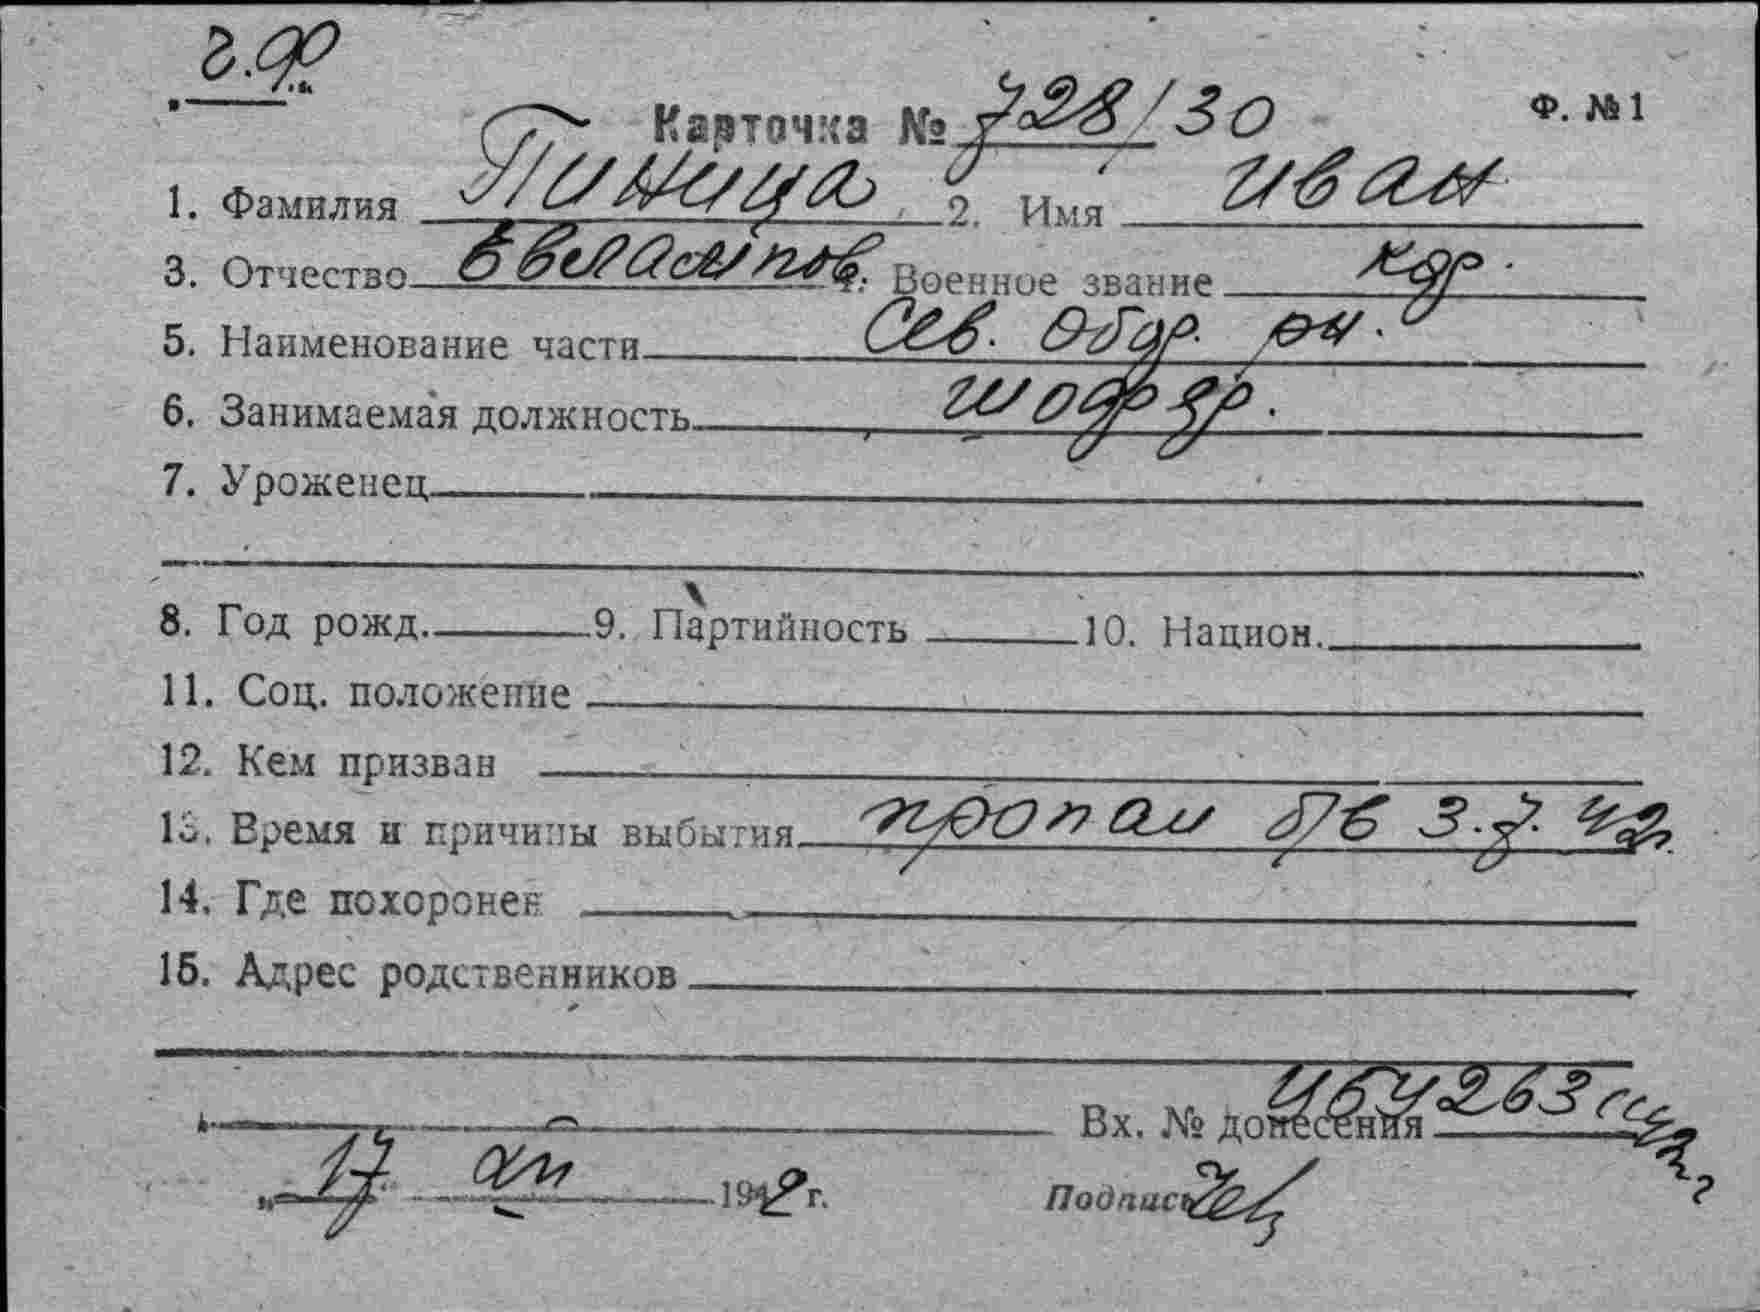 г.ф
Карточка № 728/30 Ф. №1
1. Фамилия Пиница 2. Имя Иван
3. Отчество Евлампов. 4. Военное звание кдр.
5. Наименование части Сев. Обор. рн.
6. Занимаемая должность шофер.
7. Уроженец
8. Год рожд. 9. Партийность 10. Национ.
11. Соц. положение
12. Кем призван
13. Время и причины выбытия пропал б/в 3.7.42г.
14. Где похоронен
15. Адрес родственников
Вх. № донесения
„17 1942 г. Подпись